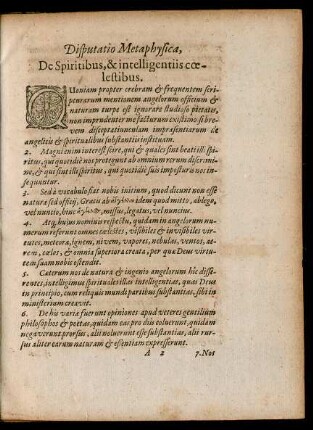 Disputatio Metaphysica,
De Spiritibus, & intelligentiis cœ-
lestibus.
QVoniam propter crebram & frequentem scri-
pturarum mentionem angelorum officium &
naturam turpe est ignorare studioso pietatis,
non imprudenter me facturum existimo si bre-
vem disceptatiunculam impræsentiarum de
angelicis & spiritualibus substantiis instituam.
2. Magni enim interest scire, qui & quales sint beati illi spi-
ritus, qui quotidiè nos protegunt ab omnium rerum discrimi-
ne, & qui sint illi spiritus, qui quotidiè suis imposturis nos in-
sequuntur.
3. Sed à vocabulo fiat nobis initium, quod dicunt non esse
naturæ sed officij, Græcis ab idem quod mitto, ablego,
vel nuncio, hinc ἄγγελος, missus, legatus, vel nuncius.
4. Atq, huius nominis respectu, quidam in angelorum nu-
merum referunt omnes cœlestes, visibiles & invisibiles vir-
tutes, meteora, ignem, nivem, vapores, nebulas, ventos, aë-
rem, cœlos, & omnia superiora creata, per quæ Deus virtu-
tem suam nobis ostendit.
5. Cæterum nos de natura & ingenio angelorum hîc disse-
rentes, intelligimus spirituales illas intelligentias, quas Deus
in principio, cum reliquis mundi partibus substantias, sibi in
ministerium creavit.
6. De his variæ fuerunt opiniones apud veteres gentilium
philosophos & poëtas, quidam corpora his voluerunt, quidam
negaverunt prorsus, alii noluerunt esse substantias, alii rur-
sus aliter earum naturam & essentiam expresserunt.
A 2 7. Nos